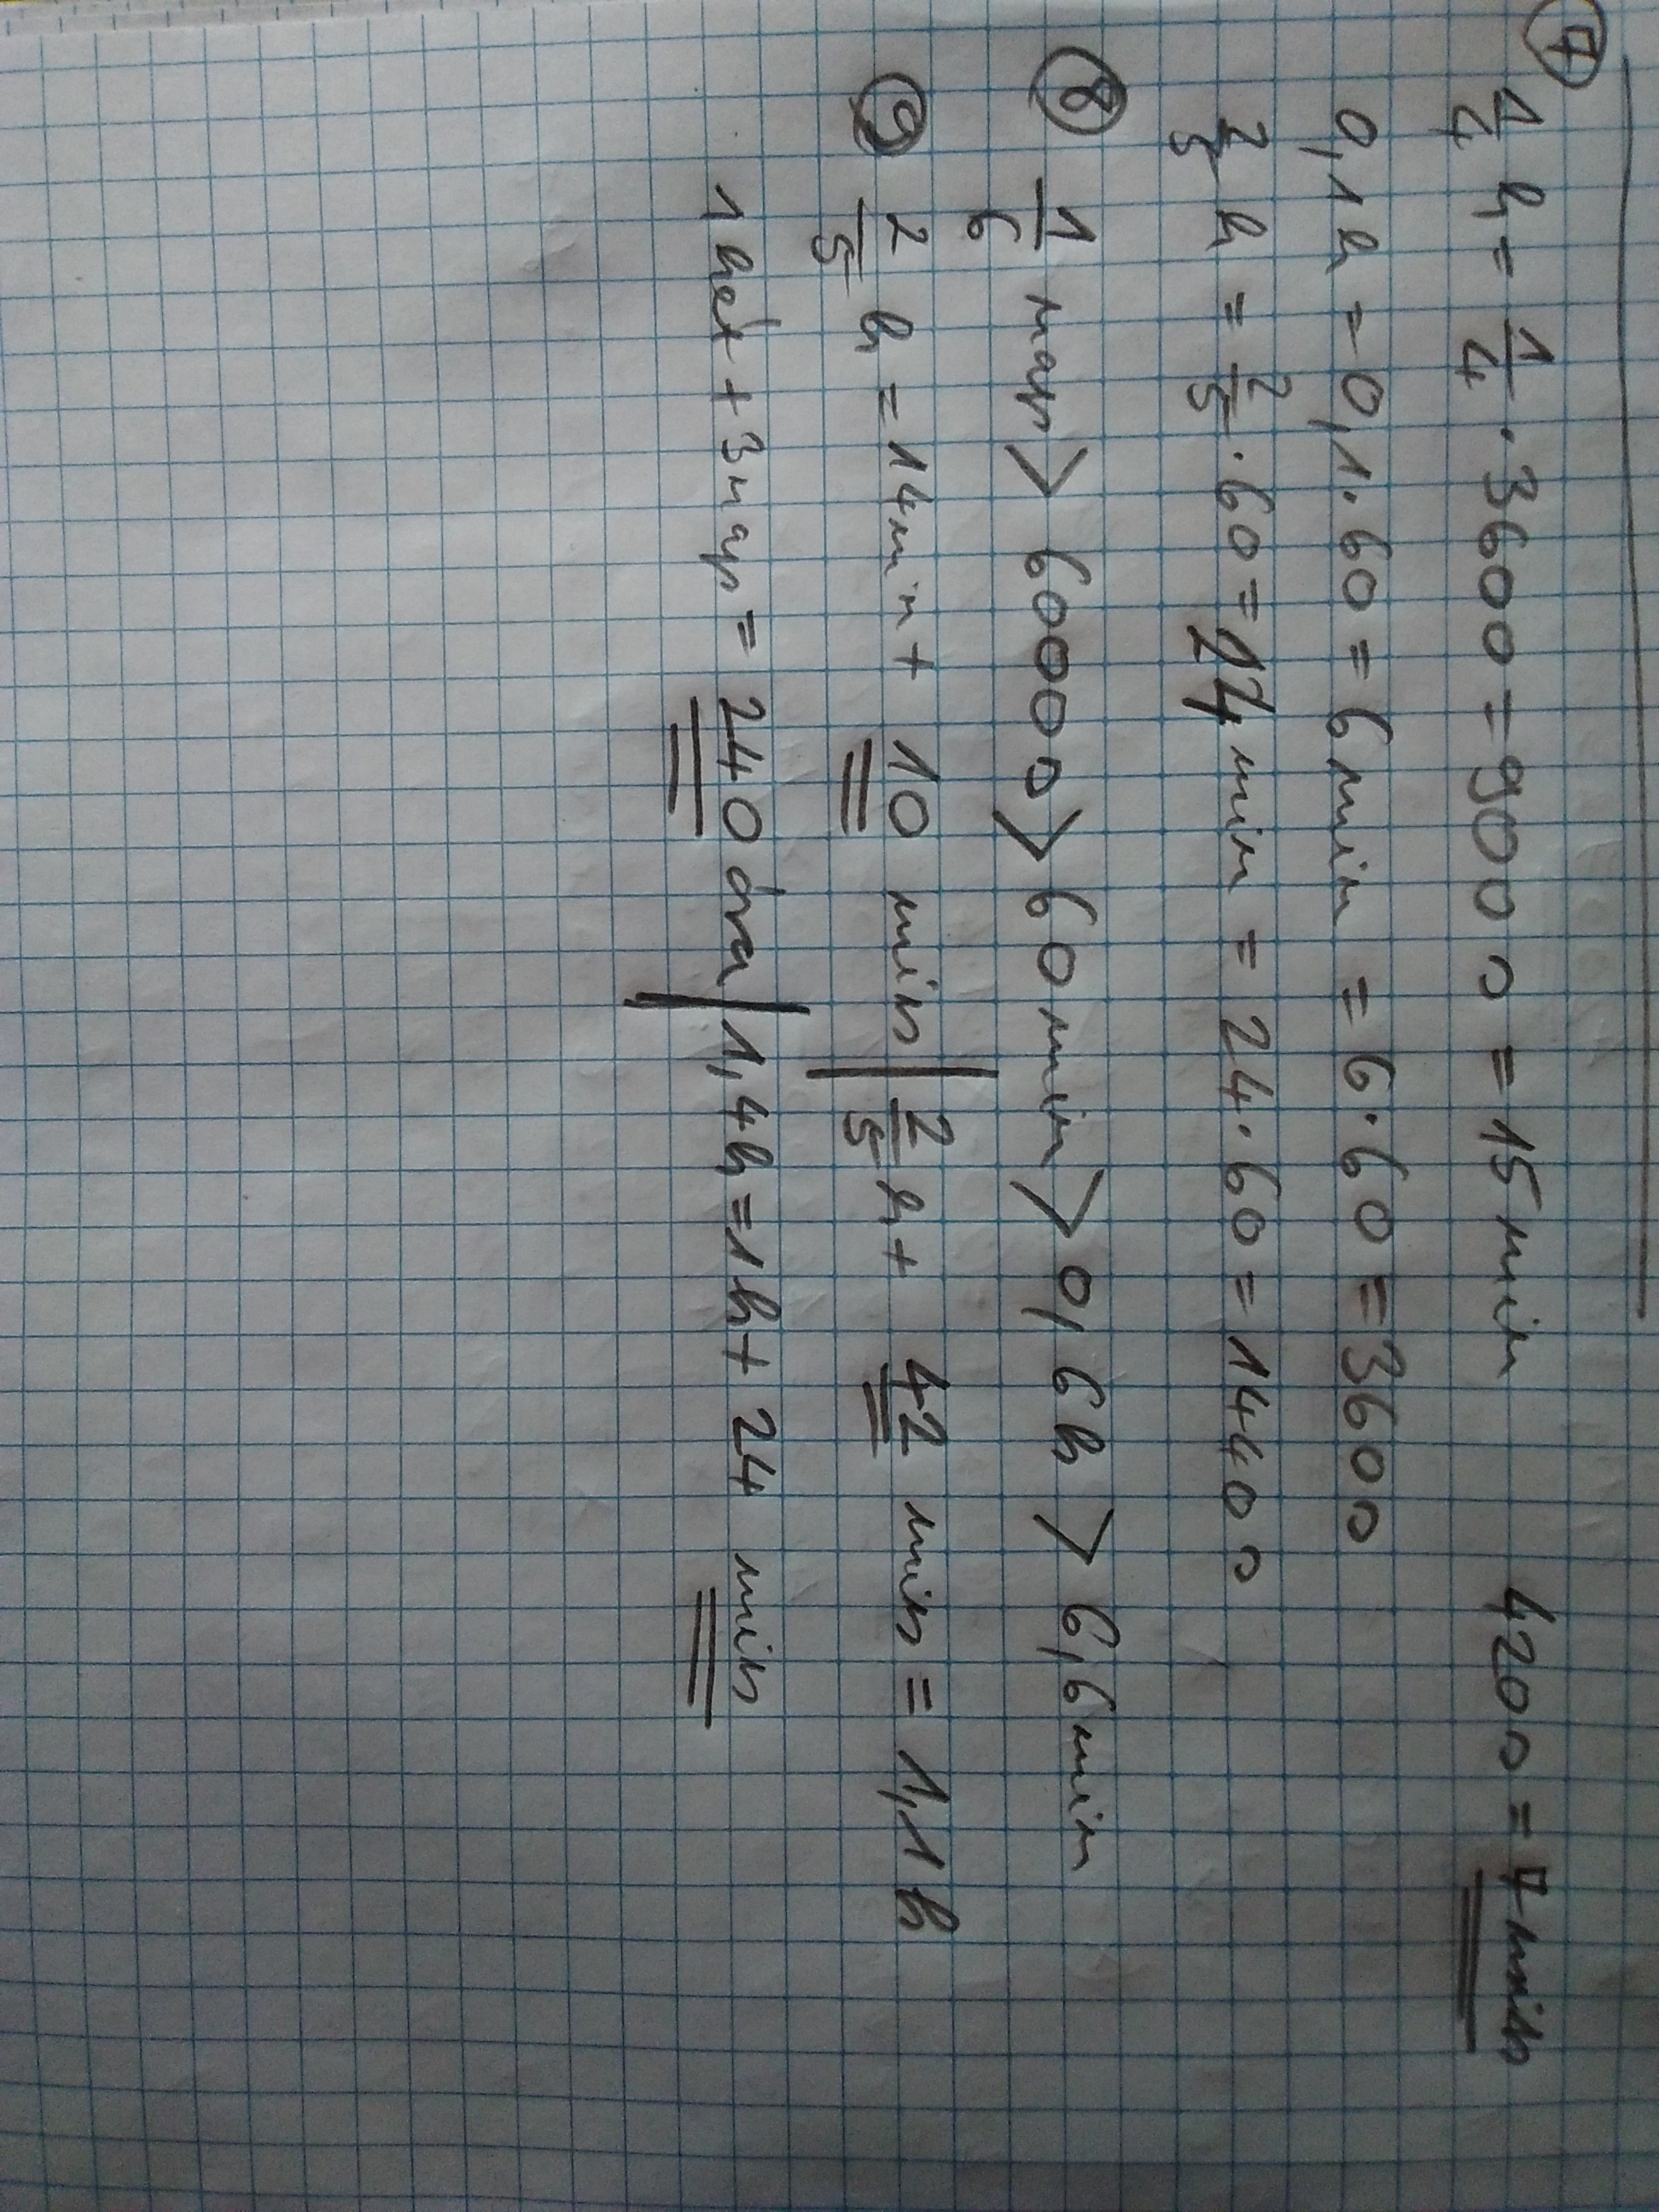 7
1/4 h = 1/4 · 3600 = 900 s = 15 min 420 s = 7 min
0,1 h = 0,1 · 60 = 6 min = 6 · 60 = 360 s
2/5 h = 2/5 · 60 = 24 min = 24 · 60 = 1440 s
8 1/6 nap > 6000 s > 60 min > 0,6 h > 6,6 min
9 2/5 h = 14 min + 10 min | 2/5 h + 42 min = 1,1 h
1 hét + 3 nap = 240 óra | 1,4 h = 1 h + 24 min